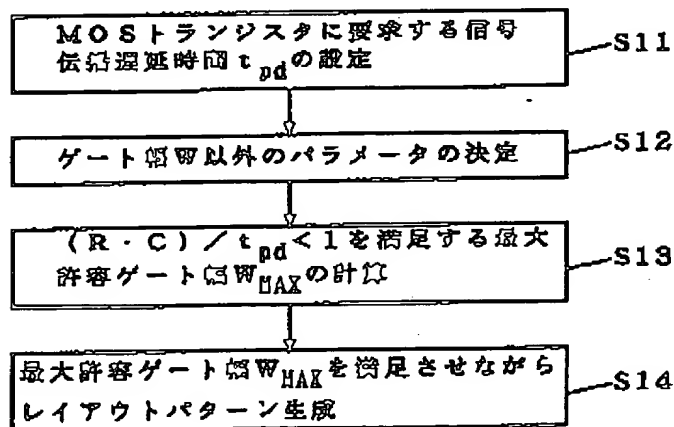 MOSトランジスタに要求する信号
伝搬遅延時間tpdの設定
S11
ゲート幅W以外のパラメータの決定
S12
(R・C)/tpd<1を満足する最大
許容ゲート幅WMAXの計算
S13
最大許容ゲート幅WMAXを満足させながら
レイアウトパターン生成
S14